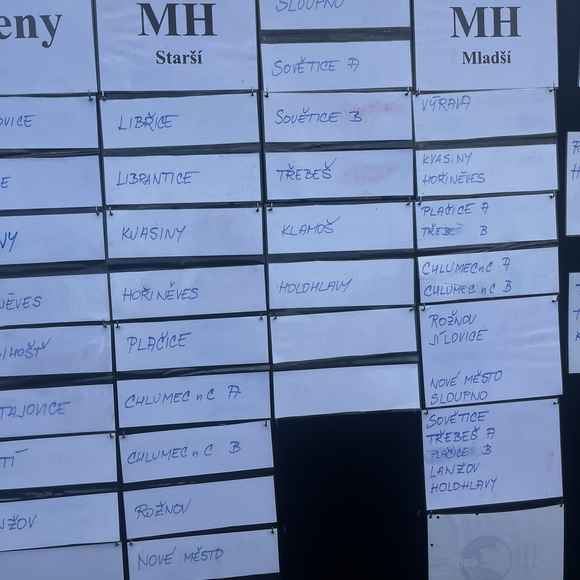 eny
OVICE
E
NY
NĚVES
LIHOŠŤ
TAJOVICE
TÍ
NŽOV
MH
Starší
LIBŘICE
LIBRANTICE
KVASINY
HOŘINĚVES
PLAČICE
CHLUMEC n C A
CHLUMEC n C B
ROŽNOV
NOVÉ MĚSTO
SLOUPNO
SOVĚTICE A
SOVĚTICE B
TŘEBEŠ
KLAMOŠ
HOLOHLAVY
MH
Mladší
VÝRAVA
KVASINY
HOŘINĚVES
PLAČICE A
TŘEBEŠ B
CHLUMEC n C A
CHLUMEC n C B
ROŽNOV
JÍLOVICE
NOVÉ MĚSTO
SLOUPNO
SOVĚTICE
TŘEBEŠ A
PLAČICE B
LANŽOV
HOLOHLAVY